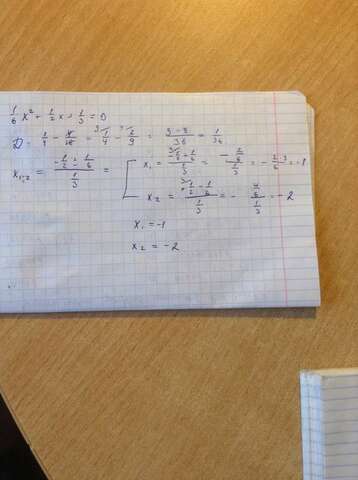 1/6 x² + 1/2 x + 1/3 = 0
D = 1/4 - 4/18 = 1/4 - 2/9 = 9-8/36 = 1/36
x₁,₂ = (-1/2 ± 1/6)/(1/3) = [ x₁ = (-1/2 + 1/6)/(1/3) = -(2/6)/(1/3) = -2·3/6 = -1
x₂ = (-1/2 - 1/6)/(1/3) = -(4/6)/(1/3) = -2
x₁ = -1
x₂ = -2